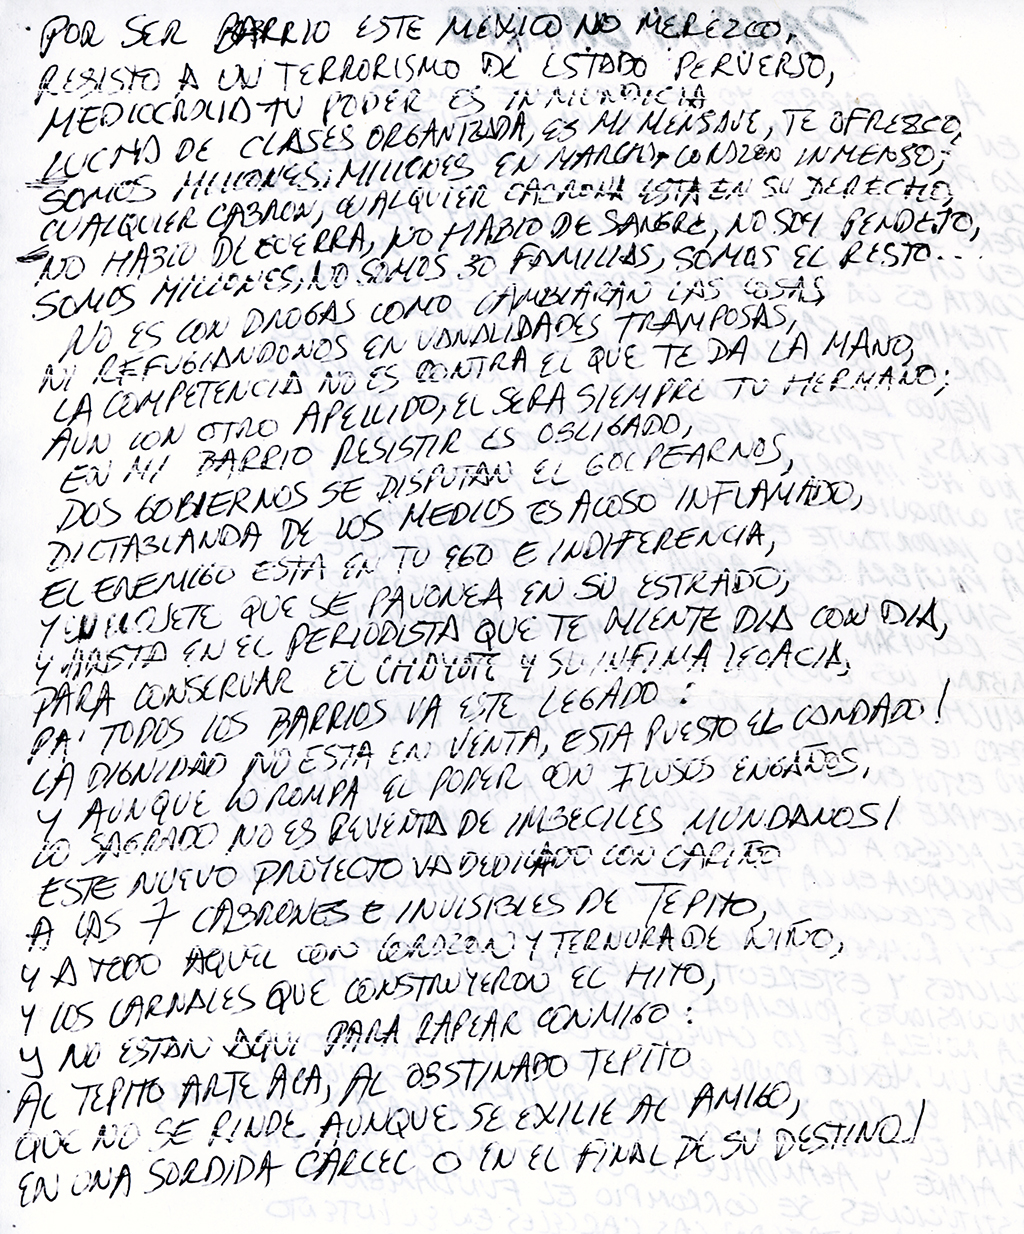 POR SER BARRIO ESTE MEXICO NO MEREZCO,
RESISTO A UN TERRORISMO DE ESTADO PERVERSO,
TU PODER ES INMUNDICIA
LUCHA DE CLASES ORGANIZADA, ES MI MENSAJE, TE OFREZCO,
SOMOS MILLONES, MILLONES EN MARCHA, CORAZON INMENSO;
CUALQUIER CABRON, CUALQUIER CABRONA ESTA EN SU DERECHO,
NO HABLO DE GUERRA, NO HABLO DE SANGRE, NO SOY PENDEJO,
SOMOS MILLONES, NO SOMOS 30 FAMILIAS, SOMOS EL RESTO...
NO ES CON DROGAS COMO CAMBIARAN LAS COSAS,
NI REFUGIANDONOS EN VANALIDADES TRAMPOSAS,
LA COMPETENCIA NO ES CONTRA EL QUE TE DA LA MANO,
AUN CON OTRO APELLIDO, EL SERA SIEMPRE TU HERMANO;
EN MI BARRIO RESISTIR ES OBLIGADO,
DOS GOBIERNOS SE DISPUTAN EL GOLPEARNOS,
DICTABLANDA DE LOS MEDIOS ES ACOSO INFLAMADO,
EL ENEMIGO ESTA EN TU EGO E INDIFERENCIA,
Y EN EL OJETE QUE SE PAVONEA EN SU ESTRADO,
Y HASTA EN EL PERIODISTA QUE TE MIENTE DIA CON DIA,
PARA CONSERVAR EL CHAYOTE Y SU INFIMA
PA' TODOS LOS BARRIOS VA ESTE LEGADO:
LA DIGNIDAD NO ESTA EN VENTA, ESTA PUESTO EL CANDADO!
Y AUNQUE LO ROMPA EL PODER CON ILUSOS ENGAÑOS,
LO SAGRADO NO ES REVENTA DE IMBECILES MUNDANOS!
ESTE NUEVO PROYECTO VA DEDICADO CON CARIÑO
A LAS 7 CABRONES E INVISIBLES DE TEPITO,
Y A TODO AQUEL CON CORAZON Y TERNURA DE NIÑO,
Y LOS CARNALES QUE CONSTRUYERON EL MITO,
Y NO ESTAN AQUI PARA RAPEAR CONMIGO:
AL TEPITO ARTE ACA, AL OBSTINADO TEPITO
QUE NO SE RINDE AUNQUE SE EXILIE AL AMIGO,
EN UNA SORDIDA CARCEL O EN EL FINAL DE SU DESTINO!